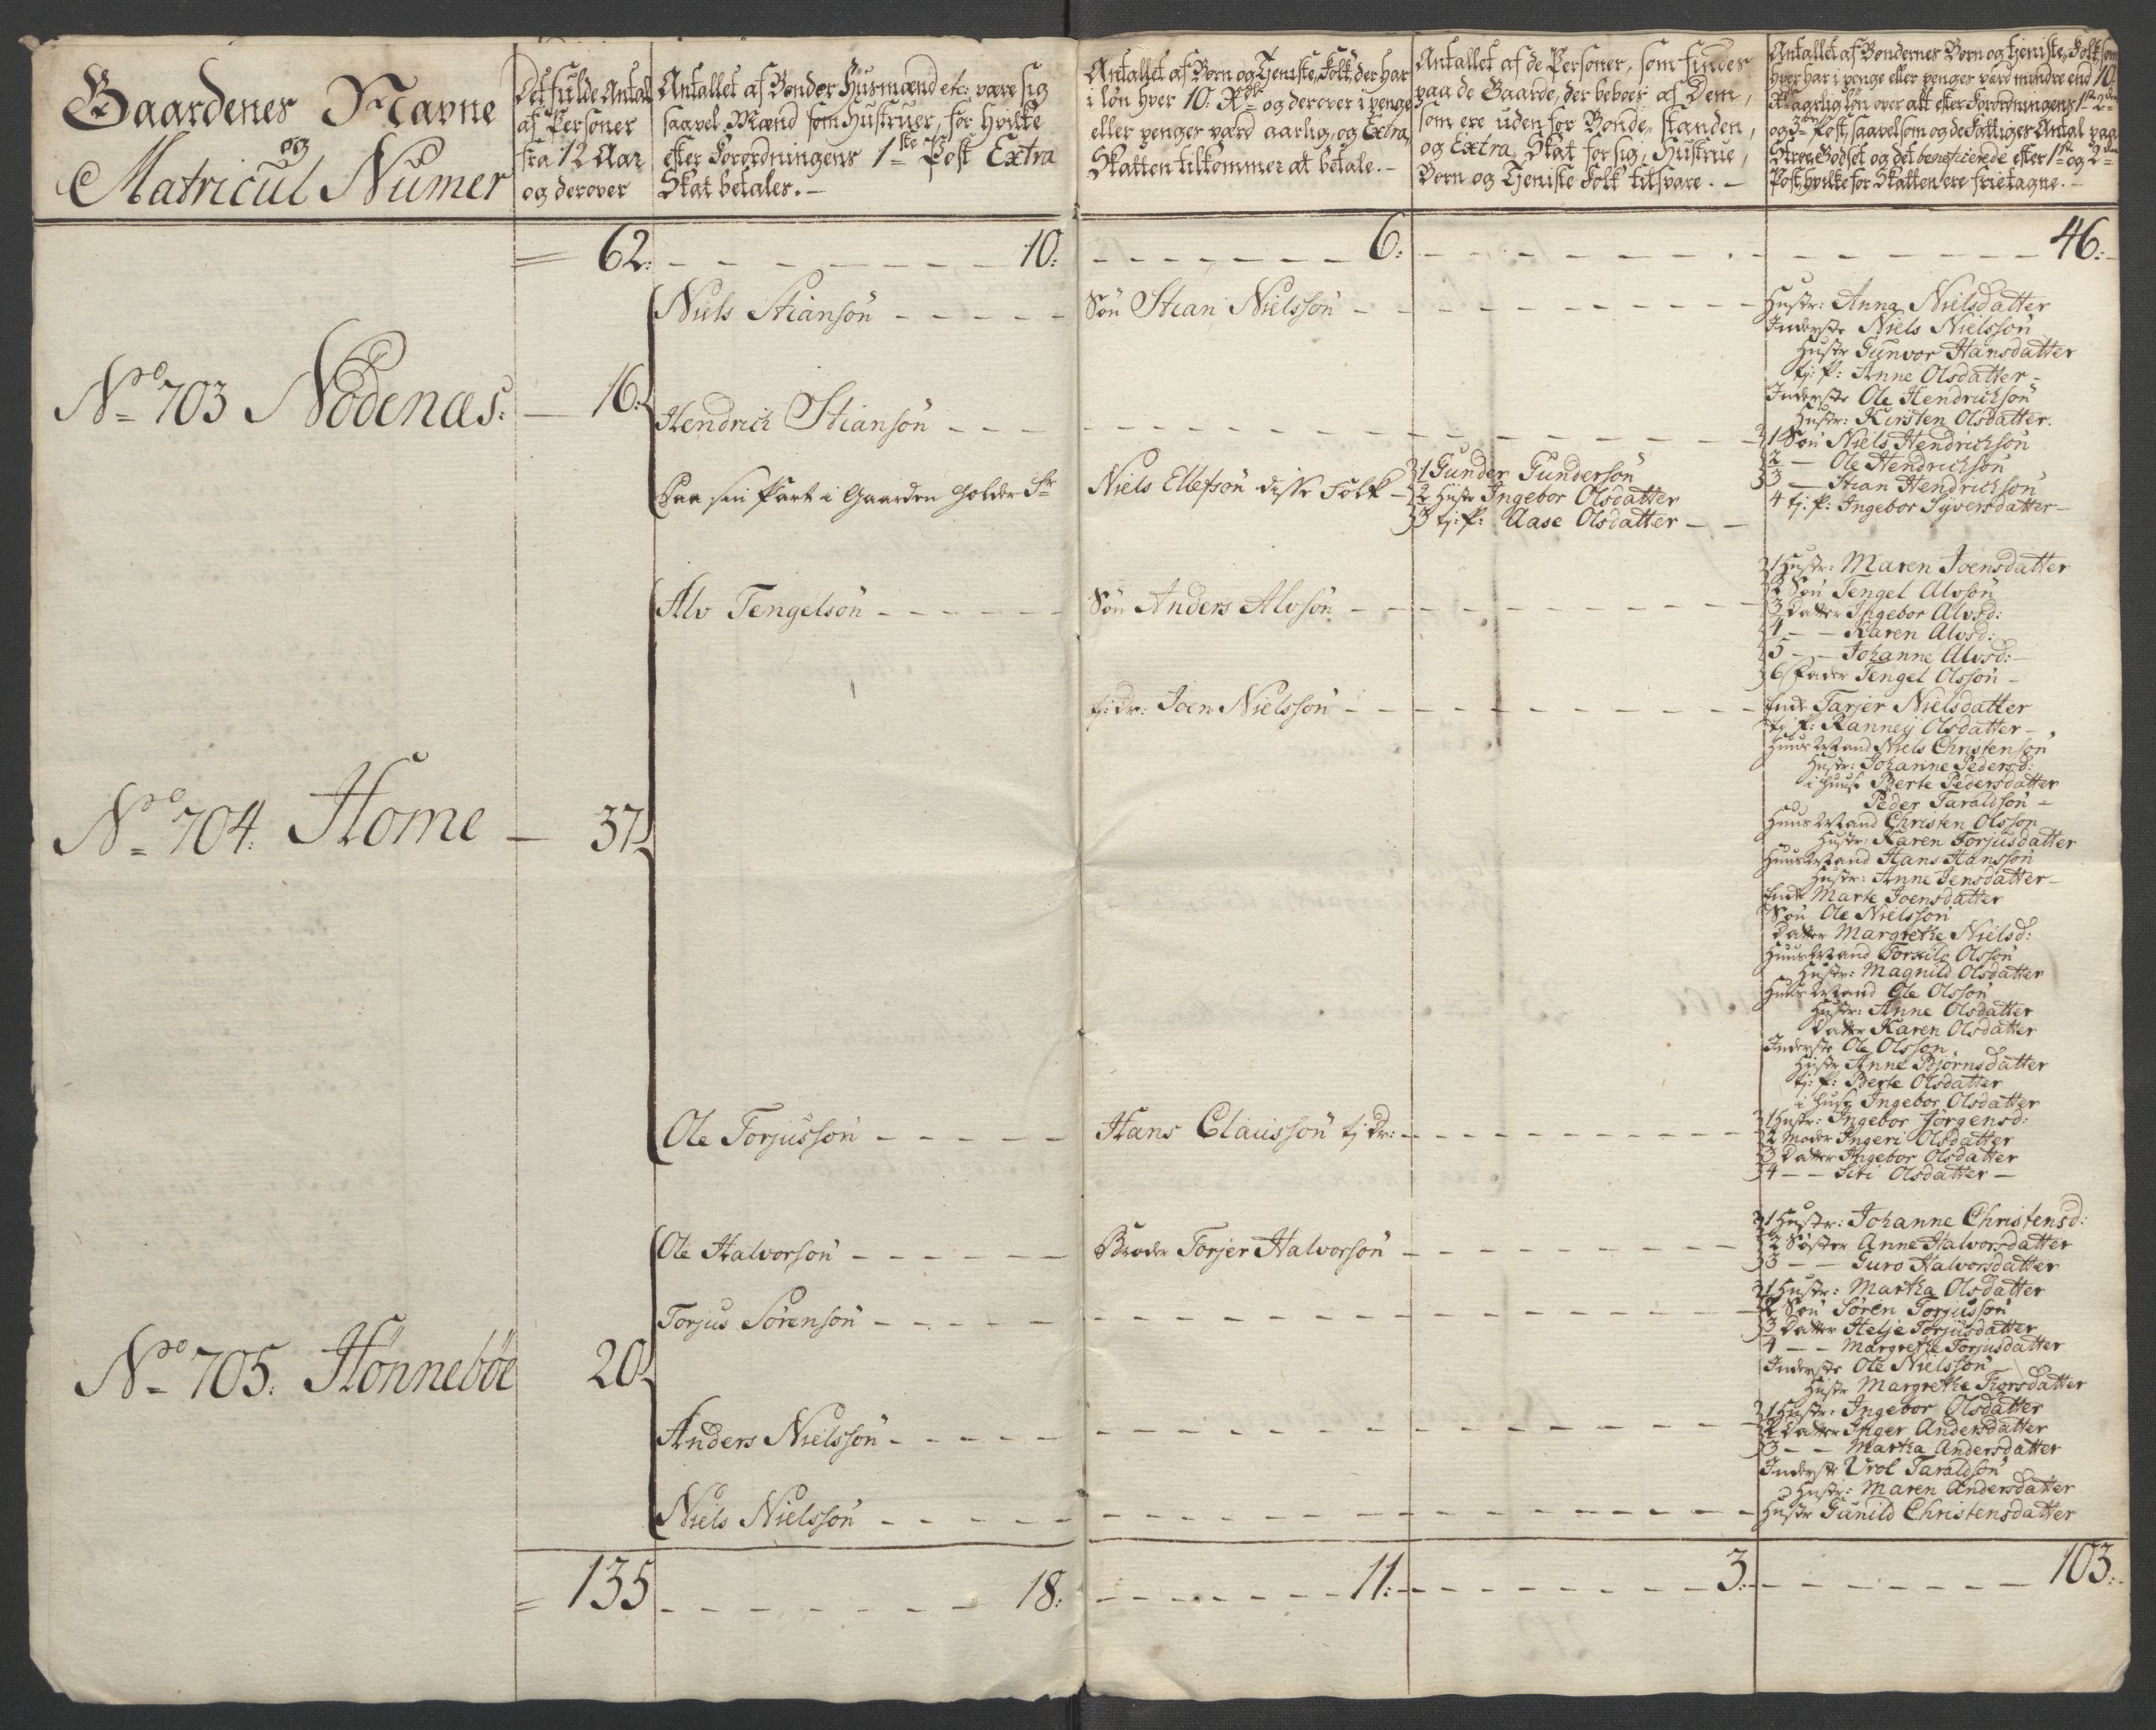 Gaardenes Navne
og
Matricul Numer
Det fulde Antal
af Personer
fra 12 Aar
og derover
Antallet af Bønder Husmænd etc: være sig
saavel Mænd som Hustruer, for hvilke
efter Forordningens 1ste Post Extra
Skat betales. –
Antallet af Børn og Tjeniste Folk, der har
i løn hver 10: Rdlr og derover i penge
eller penges værd aarlig, og Extra
Skatten tilkommer at betale. –
Antallet af de Personer, som findes
paa de Gaarde, der beboes af Dem,
som ere uden for Bonde standen,
og Extra Skat for sig, Hustrue,
Børn og Tjeniste Folk tilsvare. –
Antallet af Bøndernes Børn og tjeniste Folk som
hver har i penge eller penges værd mindre end 10
Rdlr aarlig løn over alt efter Forordningens 1ste 2den
og 3die Post, saavelsom og de Fattiges Antal paa
Strøe Godset og det beneficerede efter 1ste og 2den
Post, hvilke for Skatten ere frietagne. –
= 62: – – – 10: – – – 6: – – – 46: –
Niels Stiansøn – – – – –
Søn Stian Nielssøn – – –
Hustr: Anna Nielsdatter
Inderste Niels Nielssøn
Hustr Gunvor Hansdatter
tj: P: Anne Olsdatter –
No 703 Nødenæs: – 16:
Inderste Ole Hendrichsøn
Hustr: Kirsten Olsdatter.
Hendrich Stiansøn – – –
1 Søn Niels Hendrichsøn
2 – Ole Hendrichsøn
3 – Stian Hendrichsøn
4 tj: P: Ingebor Syversdatter –
Paa sin Part i Gaarden holder Sr
Niels Ellefsøn disse Folk –
1 Gunder Gundersøn
2 Hustr Ingebor Olsdatter
3 tj: P: Aase Olsdatter – –
Alv Tengelsøn – – – – – –
Søn Anders Alvsøn – – –
1 Hustr: Maren Joensdatter
2 Søn Tengel Alvsøn
3 Datter Ingebor Alvsd:
4 – – Karen Alvsd:
5 – – Johanne Alvsd: –
6 Fader Tengel Olssøn –
tj: Dr: Joen Nielssøn – – –
Enke Tarjer Nielsdatter
tj: P: Ranney Olsdatter –
Huus Mand Niels Christensøn
Hustr: Johanne Pedersd:
i huus Berte Pedersdatter
Peder Taraldsøn –
No 704: Home – 37
Huus Mand Christen Olsson
Hustr: Karen Torjusdatter
Huus Mand Hans Hanssøn
Hustr: Anne Jensdatter –
Enke Marte Joensdatter
Søn Ole Nielssøn
Datter Margrethe Nielsd:
Huus Mand Torkild Olssøn
Hustr: Magnild Olsdatter
Huus Mand Ole Olssøn
Hustr: Anne Olsdatter
Datter Karen Olsdatter
Inderste Ole Olsson
Hustr Anne Bjørnsdatter
tj: P: Berte Olsdatter
i huus Ingebor Olsdatter
Ole Torjussøn – – – – –
Hans Claussøn tj Dr: – – –
1 Hustr: Ingebor Jørgensd:
2 Moder Ingeri Olsdatter
3 Datter Ingebor Olsdatter
4 – – Siri Olsdatter –
Ole Halvorsøn – – – – – –
Broder Torjer Halvorsøn – – –
1 Hustr: Johanne Christensd:
2 Søster Anne Halvorsdatter
3 – – Guro Halvorsdatter
Torjus Sørensøn – – – – –
1 Hustr: Martha Olsdatter
2 Søn Søren Torjussøn
3 Datter Helje Torjusdatter
4 – – Margrethe Torjusdatter
No 705: Hønnebøe 20
Inderste Ole Nielssøn
Hustr Margrethe Thorsdatter
Anders Nielssøn – – – – –
1 Hustr: Ingebor Olsdatter
2 Datter Inger Andersdatter
3 – – Martha Andersdatter
Inderste Urol Taraldsøn
Hustr: Maren Andersdatter
Niels Nielssøn – – – – –
Hustr Gunild Christensdatter
= 135 – – – 18: – – – 11: – – – 3: – – – 103: –